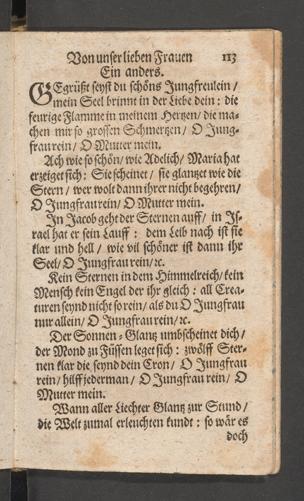 Von unser lieben Frauen 113
Ein anders.
GEgrüßt seyst du schöns Jungfreulein /
mein Seel brinnt in der Liebe dein : die
feurige Flamme in meinem Hertzen / die ma-
chen mir so grossen Schmertzen / O Jung-
frau rein / O Mutter mein.
Ach wie so schön / wie Adelich / Maria hat
erzeiget sich : Sie scheinet / sie glantzet wie die
Stern / wer wolt dann ihrer nicht begehren /
O Jungfrau rein / O Mutter mein.
In Jacob geht der Sternen auff / in Js-
rael hat er sein Lauff : dem Leib nach ist sie
klar und hell / wie vil schöner ist dann ihr
Seel / O Jungfrau rein / ꝛc.
Kein Sternen in dem Himmelreich / kein
Mensch kein Engel der ihr gleich : all Crea-
turen seynd nicht so rein / als du O Jungfrau
nur allein / O Jungfrau rein / ꝛc.
Der Sonnen-Glantz umbscheinet dich /
der Mond zu Füssen leget sich : zwölff Ster-
nen klar die seynd dein Cron / O Jungfrau
rein / hilff jederman / O Jungfrau rein / O
Mutter mein.
Wann aller Liechter Glantz zur Stund /
die Welt zumal erleuchten kundt : so wär es
doch